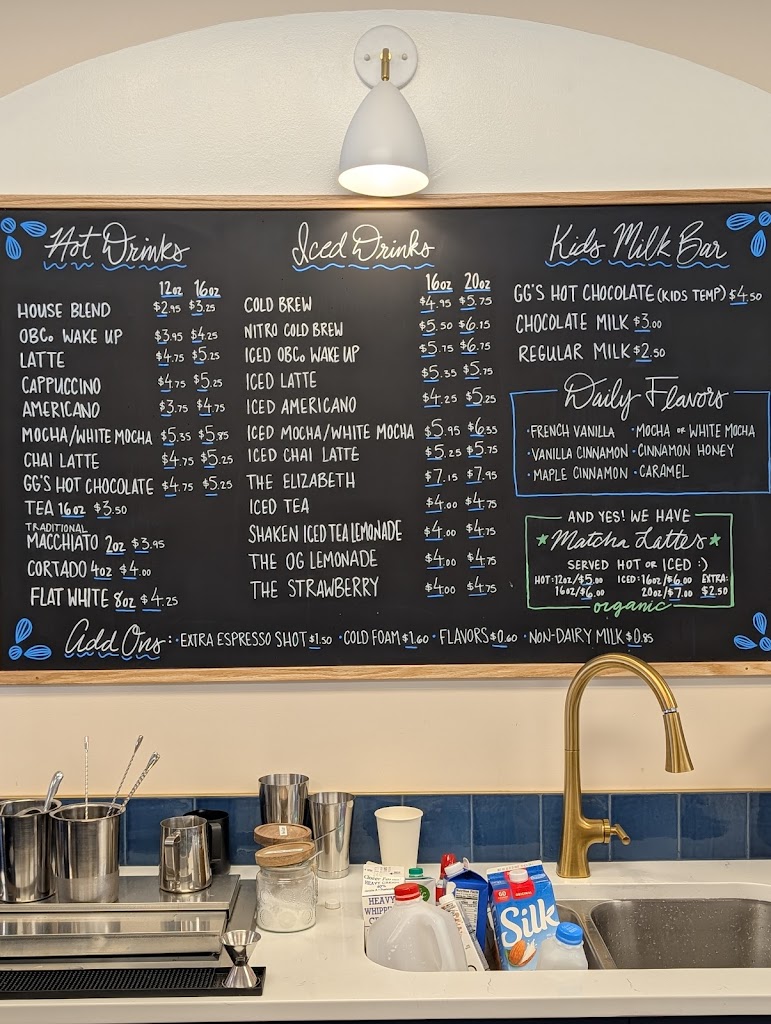 Hot Drinks
12oz 16oz
HOUSE BLEND $2.95 $3.25
OBCo WAKE UP $3.95 $4.25
LATTE $4.75 $5.25
CAPPUCCINO $4.75 $5.25
AMERICANO $3.75 $4.75
MOCHA/WHITE MOCHA $5.35 $5.85
CHAI LATTE $4.75 $5.25
GG'S HOT CHOCOLATE $4.75 $5.25
TEA 16oz $3.50
TRADITIONAL
MACCHIATO 2oz $3.95
CORTADO 4oz $4.00
FLAT WHITE 8oz $4.25
Iced Drinks
16oz 20oz
COLD BREW $4.95 $5.75
NITRO COLD BREW $5.50 $6.15
ICED OBCo WAKE UP $5.75 $6.75
ICED LATTE $5.35 $5.75
ICED AMERICANO $4.25 $5.25
ICED MOCHA/WHITE MOCHA $5.95 $6.35
ICED CHAI LATTE $5.25 $5.75
THE ELIZABETH $7.15 $7.95
ICED TEA $4.00 $4.75
SHAKEN ICED TEA LEMONADE $4.00 $4.75
THE OG LEMONADE $4.00 $4.75
THE STRAWBERRY $4.00 $4.75
Kids Milk Bar
GG'S HOT CHOCOLATE (KIDS TEMP) $4.50
CHOCOLATE MILK $3.00
REGULAR MILK $2.50
Daily Flavors
·FRENCH VANILLA ·MOCHA or WHITE MOCHA
·VANILLA CINNAMON ·CINNAMON HONEY
·MAPLE CINNAMON ·CARAMEL
AND YES! WE HAVE
Matcha Lattes
SERVED HOT or ICED :)
HOT: 12oz/$5.00 ICED: 16oz/$6.00 EXTRA:
16oz/$6.00 20oz/$7.00 $2.50
organic
Add Ons: ·EXTRA ESPRESSO SHOT $1.50 ·COLD FOAM $1.60 ·FLAVORS $0.60 ·NON-DAIRY MILK $0.85
HEAVY
WHIPP
Silk